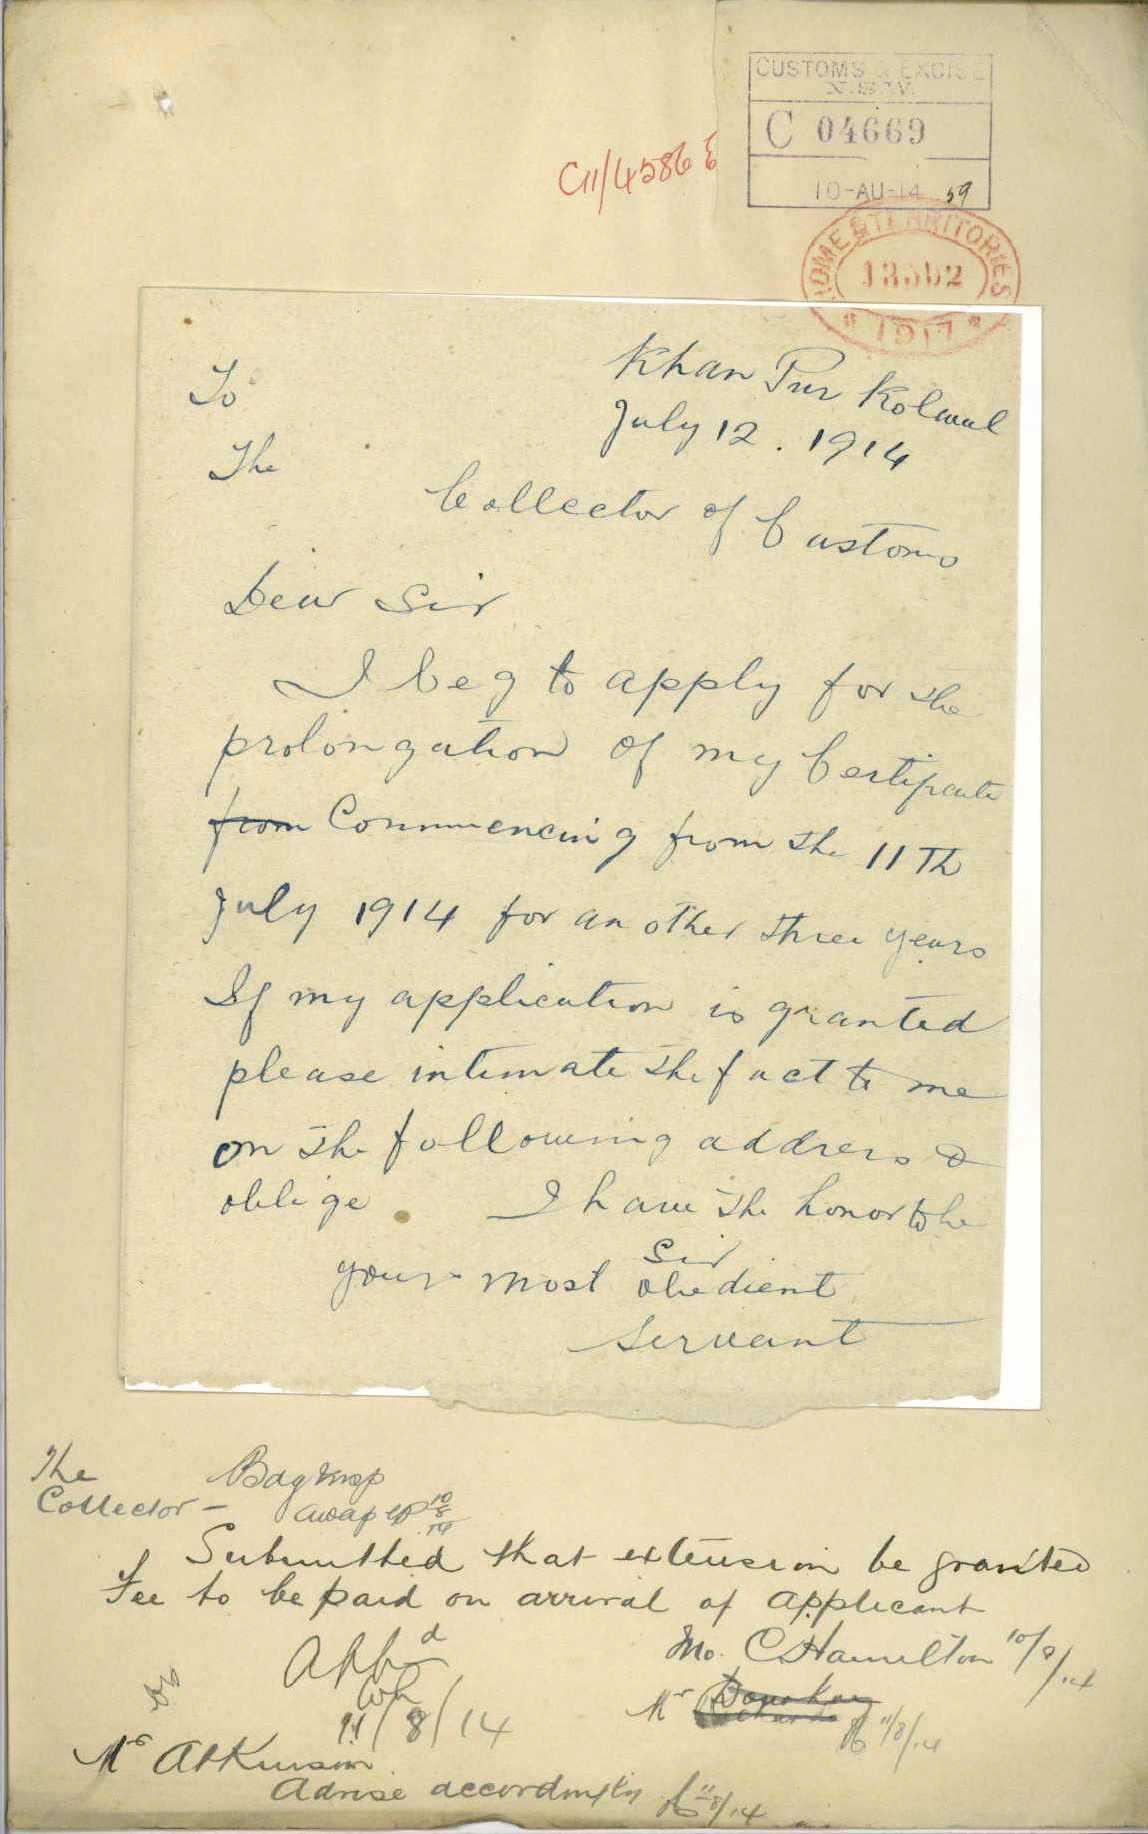 CUSTOMS & EXCISE
N.S.W.
C 04669
10-AU-14 59
C11/4586
HOME & TERRITORIES
1917
Khan Pur Kolwal
July 12. 1914
To
The
Collector of Customs
Dear Sir
I beg to apply for the
prolongation of my Certificate
from Commencing from the 11Th
July 1914 for another three years
If my application is granted
please intimate the fact to me
on the following address &
oblige I have the honor to be
Sir
your most obedient
servant
The
Collector -
10/8/14
Submitted that extension be granted
Fee to be paid on arrival of applicant
App^d
11/8/14
C. Hamilton 10/8/14
Mr
11/8/14
Mr Atkinson
Advise accordingly
11/8/14